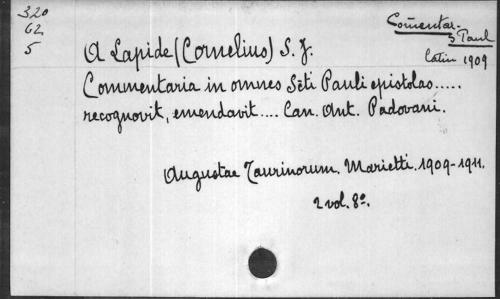 320
62
5
Com̄entar.
S Paul
Latin 1909
A Lapide (Cornelius) S. J.
Commentaria in omnes Sc̄ti Pauli epistolas.....
recognovit, emendavit.... Can. Ant. Padovani.
Augustae Taurinorum. Marietti. 1909-1911.
2 vol. 8º.